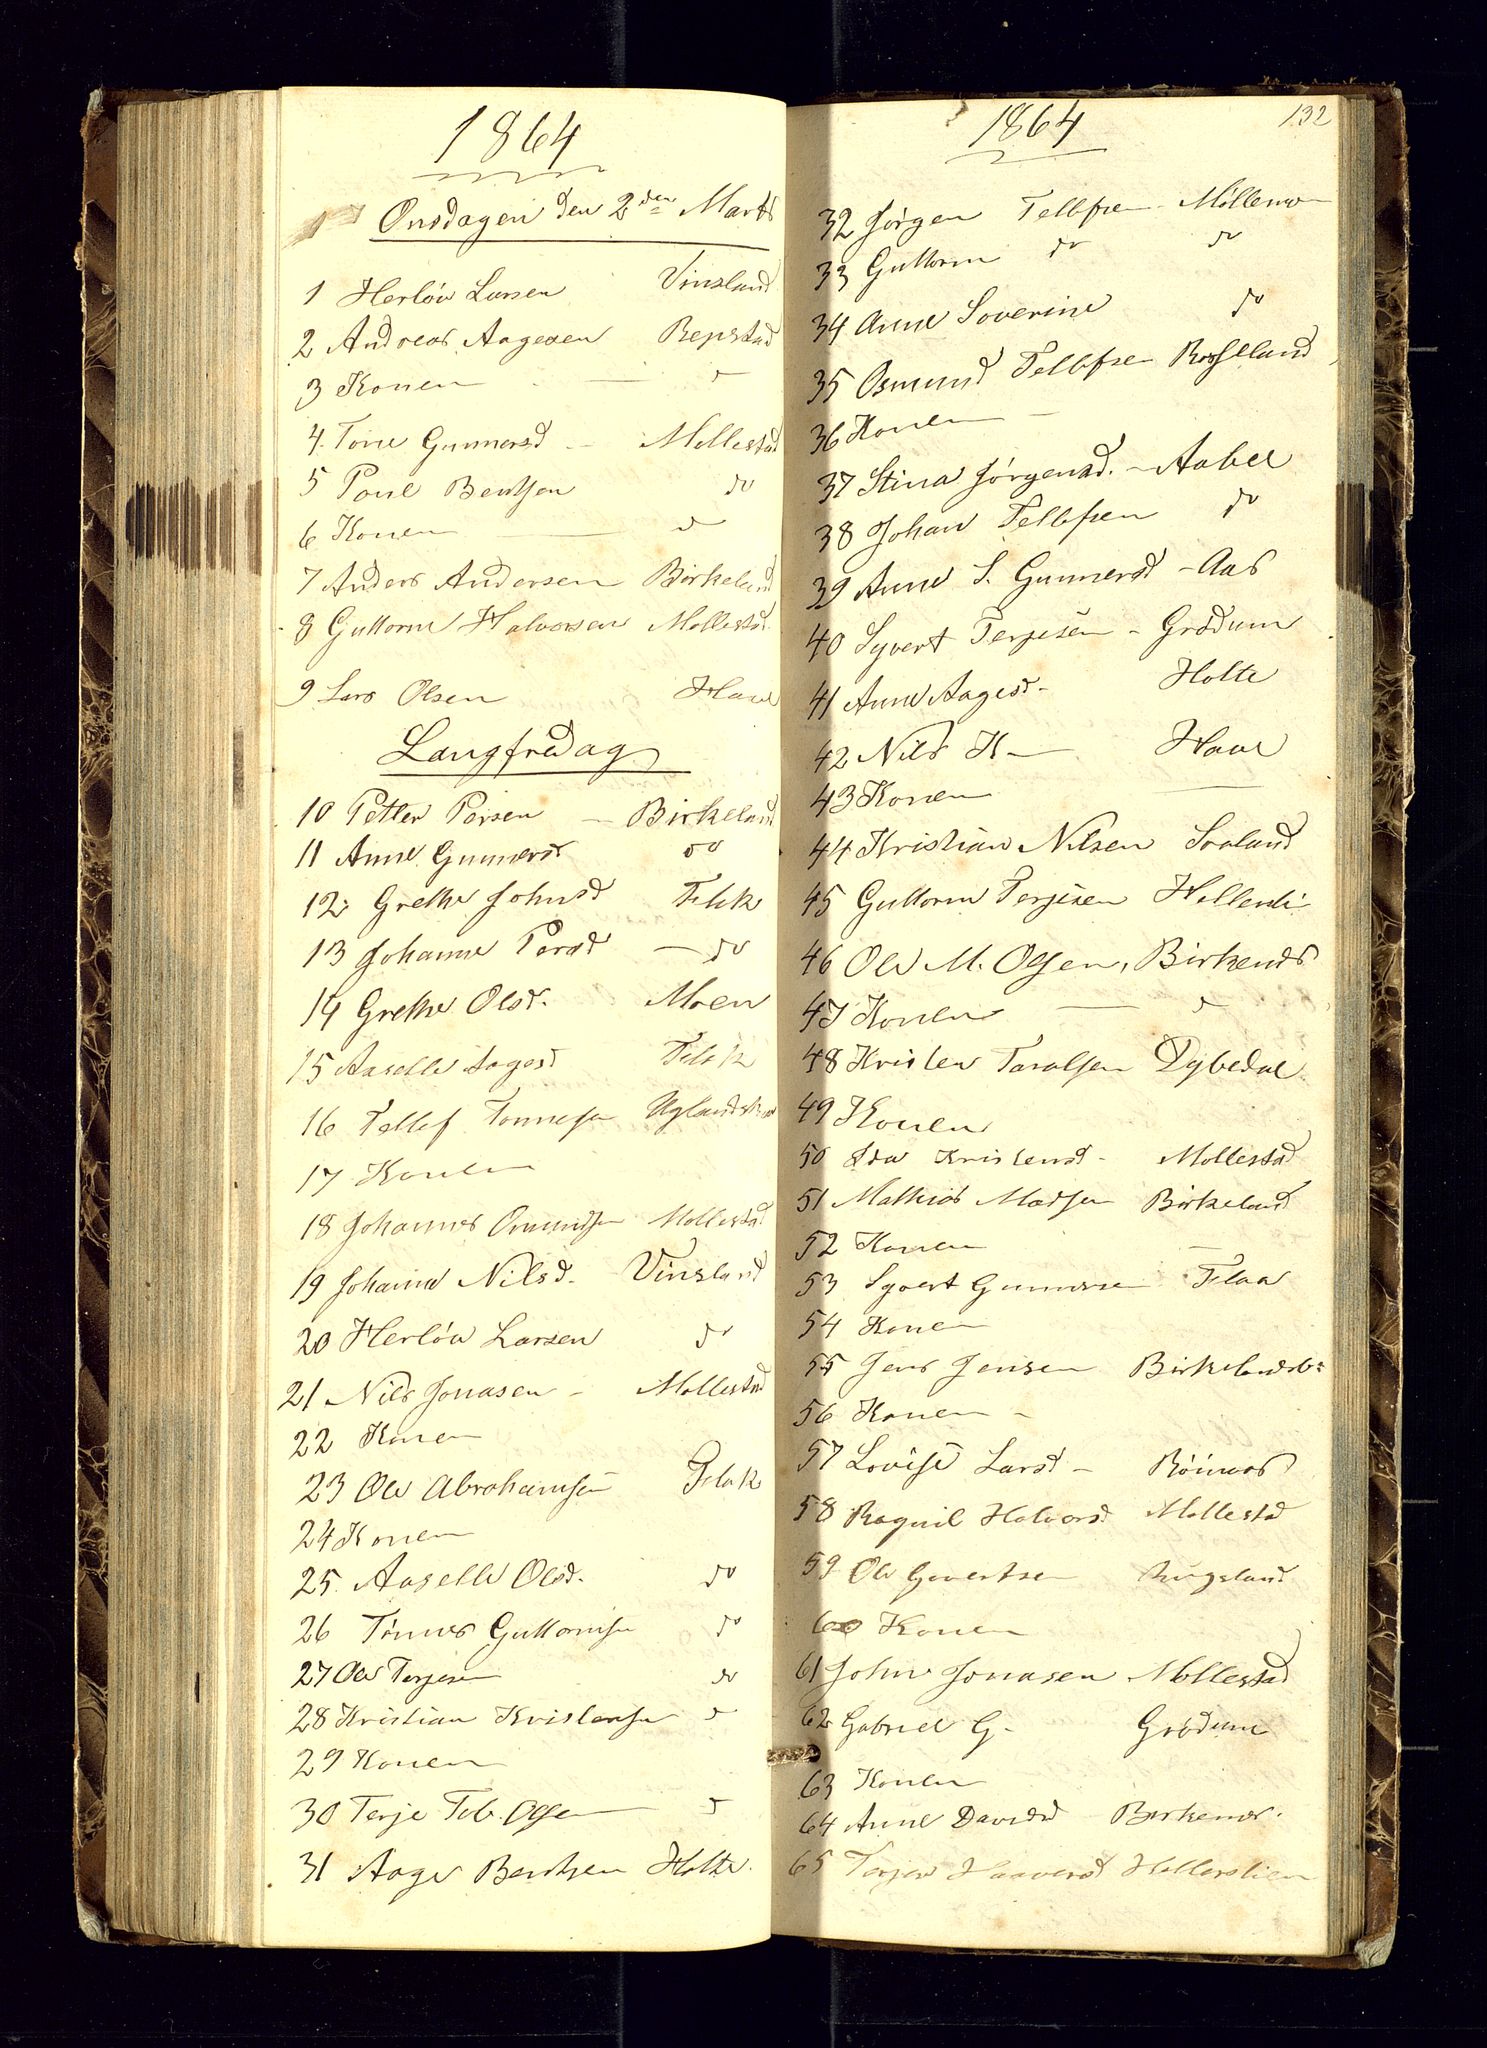 1864
Onsdagen den 2den Marts
1 Herløv Larsen Vinsland
2 Andreas Aagesen Repstad
3 Konen — "
4. Tone Gunnersd — Mollestad
5 Poul Bentsen do
6 Konen — "
7 Anders Andersen Birkeland
8 Guttorm Halvorsen Mollestad
9 Lars Olsen Haave
Langfredag
10 Petter Persen — Birkeland
11 Anne Gunnersd do
12 Grethe Johnsd Flak
13 Johanne Persd — do
14 Grethe Olsd. Moen
15 Aaselle Aagesd Flak
16 Tellef Tønnesen
17 Konen
18 Johannes Omundsen Mollestad
19 Johanne Nilsd. Vinsland
20 Herløv Larsen do
21 Nils Jonasen — Mollestad
22 Konen
23 Ole Abrahamsen Flak
24 Konen
25. Aaselle Olsd. do
26 Tønnes Guttormsen do
27 Ole Terjesen do
28 Kristian Kristensen "
29 Konen
30 Terje Tob. Olsen "
31 Aage Bentsen Holte.
1864 132
32 Jørgen Tellefsen Møllemoen
33 Guttorm do do
34 Anne Severine do
35 Osmund Tellefsen Rosseland
36 Konen —
37 Stina Jørgensd. — Aabel
38 Johan Tellefsen do
39 Anne S. Gunnersd — Aas
40 Syvert Terjesen — Grødum
41 Anne Aagesd — Holte
42 Nils K — Haave
43 Konen —
44 Kristian Nilsen
45 Guttorm Terjesen
46 Ole M. Olsen, Birkenes
47 Konen — "
48 Kristen Taralsen Dybedal
49 Konen
50 Ida Kristensd — Mollestad
51 Mathias Madsen Birkeland
52 Konen —
53 Syvert Gunnersen Flaa
54 Konen
55 Jens Jensen Birkelandsb:
56 Konen —
57 Lovise Larsd —
58 Ragnil Halvorsd. Mollestad
59 Ole Govertsen Rugsland
60 Konen
61 John Jonasen Mollestad
62 Gabriel G. Grødum
63 Konen
64 Anne Davidsd Birkenes.
65 Terjer Haaversd Hellerslien